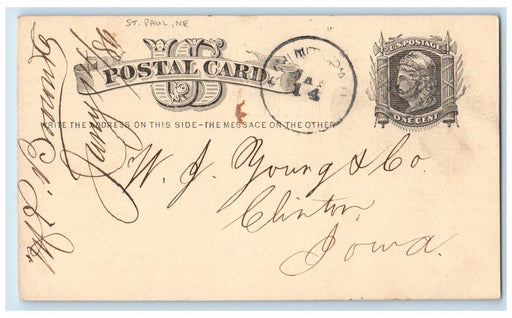 ST. PAUL, NE
US
POSTAL CARD
U.S. POSTAGE
ONE CENT
JAN
14
WRITE THE ADDRESS ON THIS SIDE - THE MESSAGE ON THE OTHER
W. J. Young & Co.
Clinton,
Iowa.